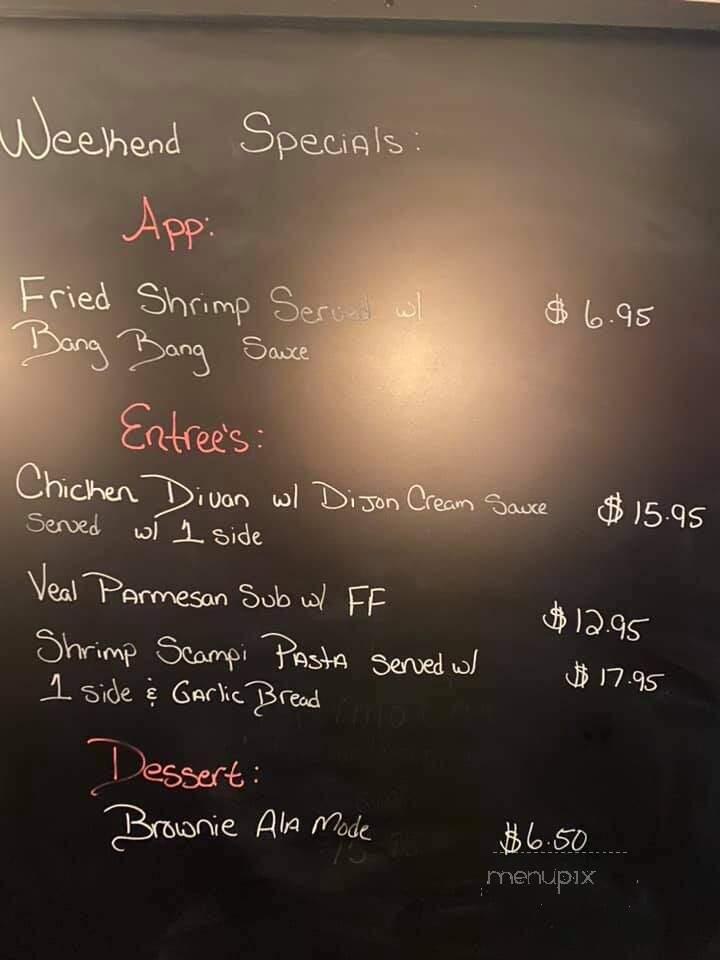 Weekend Specials:
App:
Fried Shrimp Served w/ $6.95
Bang Bang Sauce
Entree's:
Chicken Divan w/ Dijon Cream Sauce $15.95
Served w/ 1 side
Veal Parmesan Sub w/ FF $12.95
Shrimp Scampi Pasta served w/ $17.95
1 side & Garlic Bread
Dessert:
Brownie Ala Mode $6.50
menupix